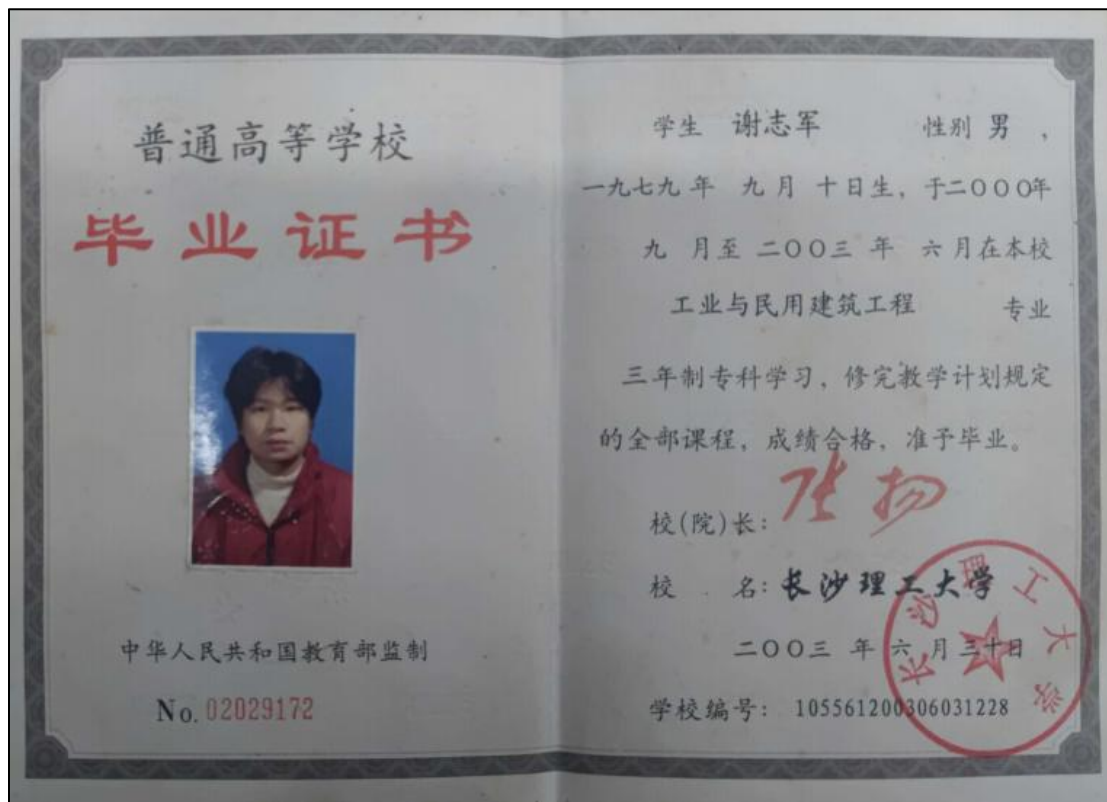 普通高等学校
毕业证书
中华人民共和国教育部监制
No. 02029172
学生 谢志军 性别 男 ,
一九七九 年 九月 十日生, 于二〇〇〇年
九 月至 二〇〇三 年 六月在本校
工业与民用建筑工程 专业
三年制专科学习, 修完教学计划规定
的全部课程, 成绩合格, 准予毕业。
校(院)长: 张扬
校 名: 长沙理工大学
二〇〇三 年 六 月 三十日
学校编号: 105561200306031228
长沙理工大学